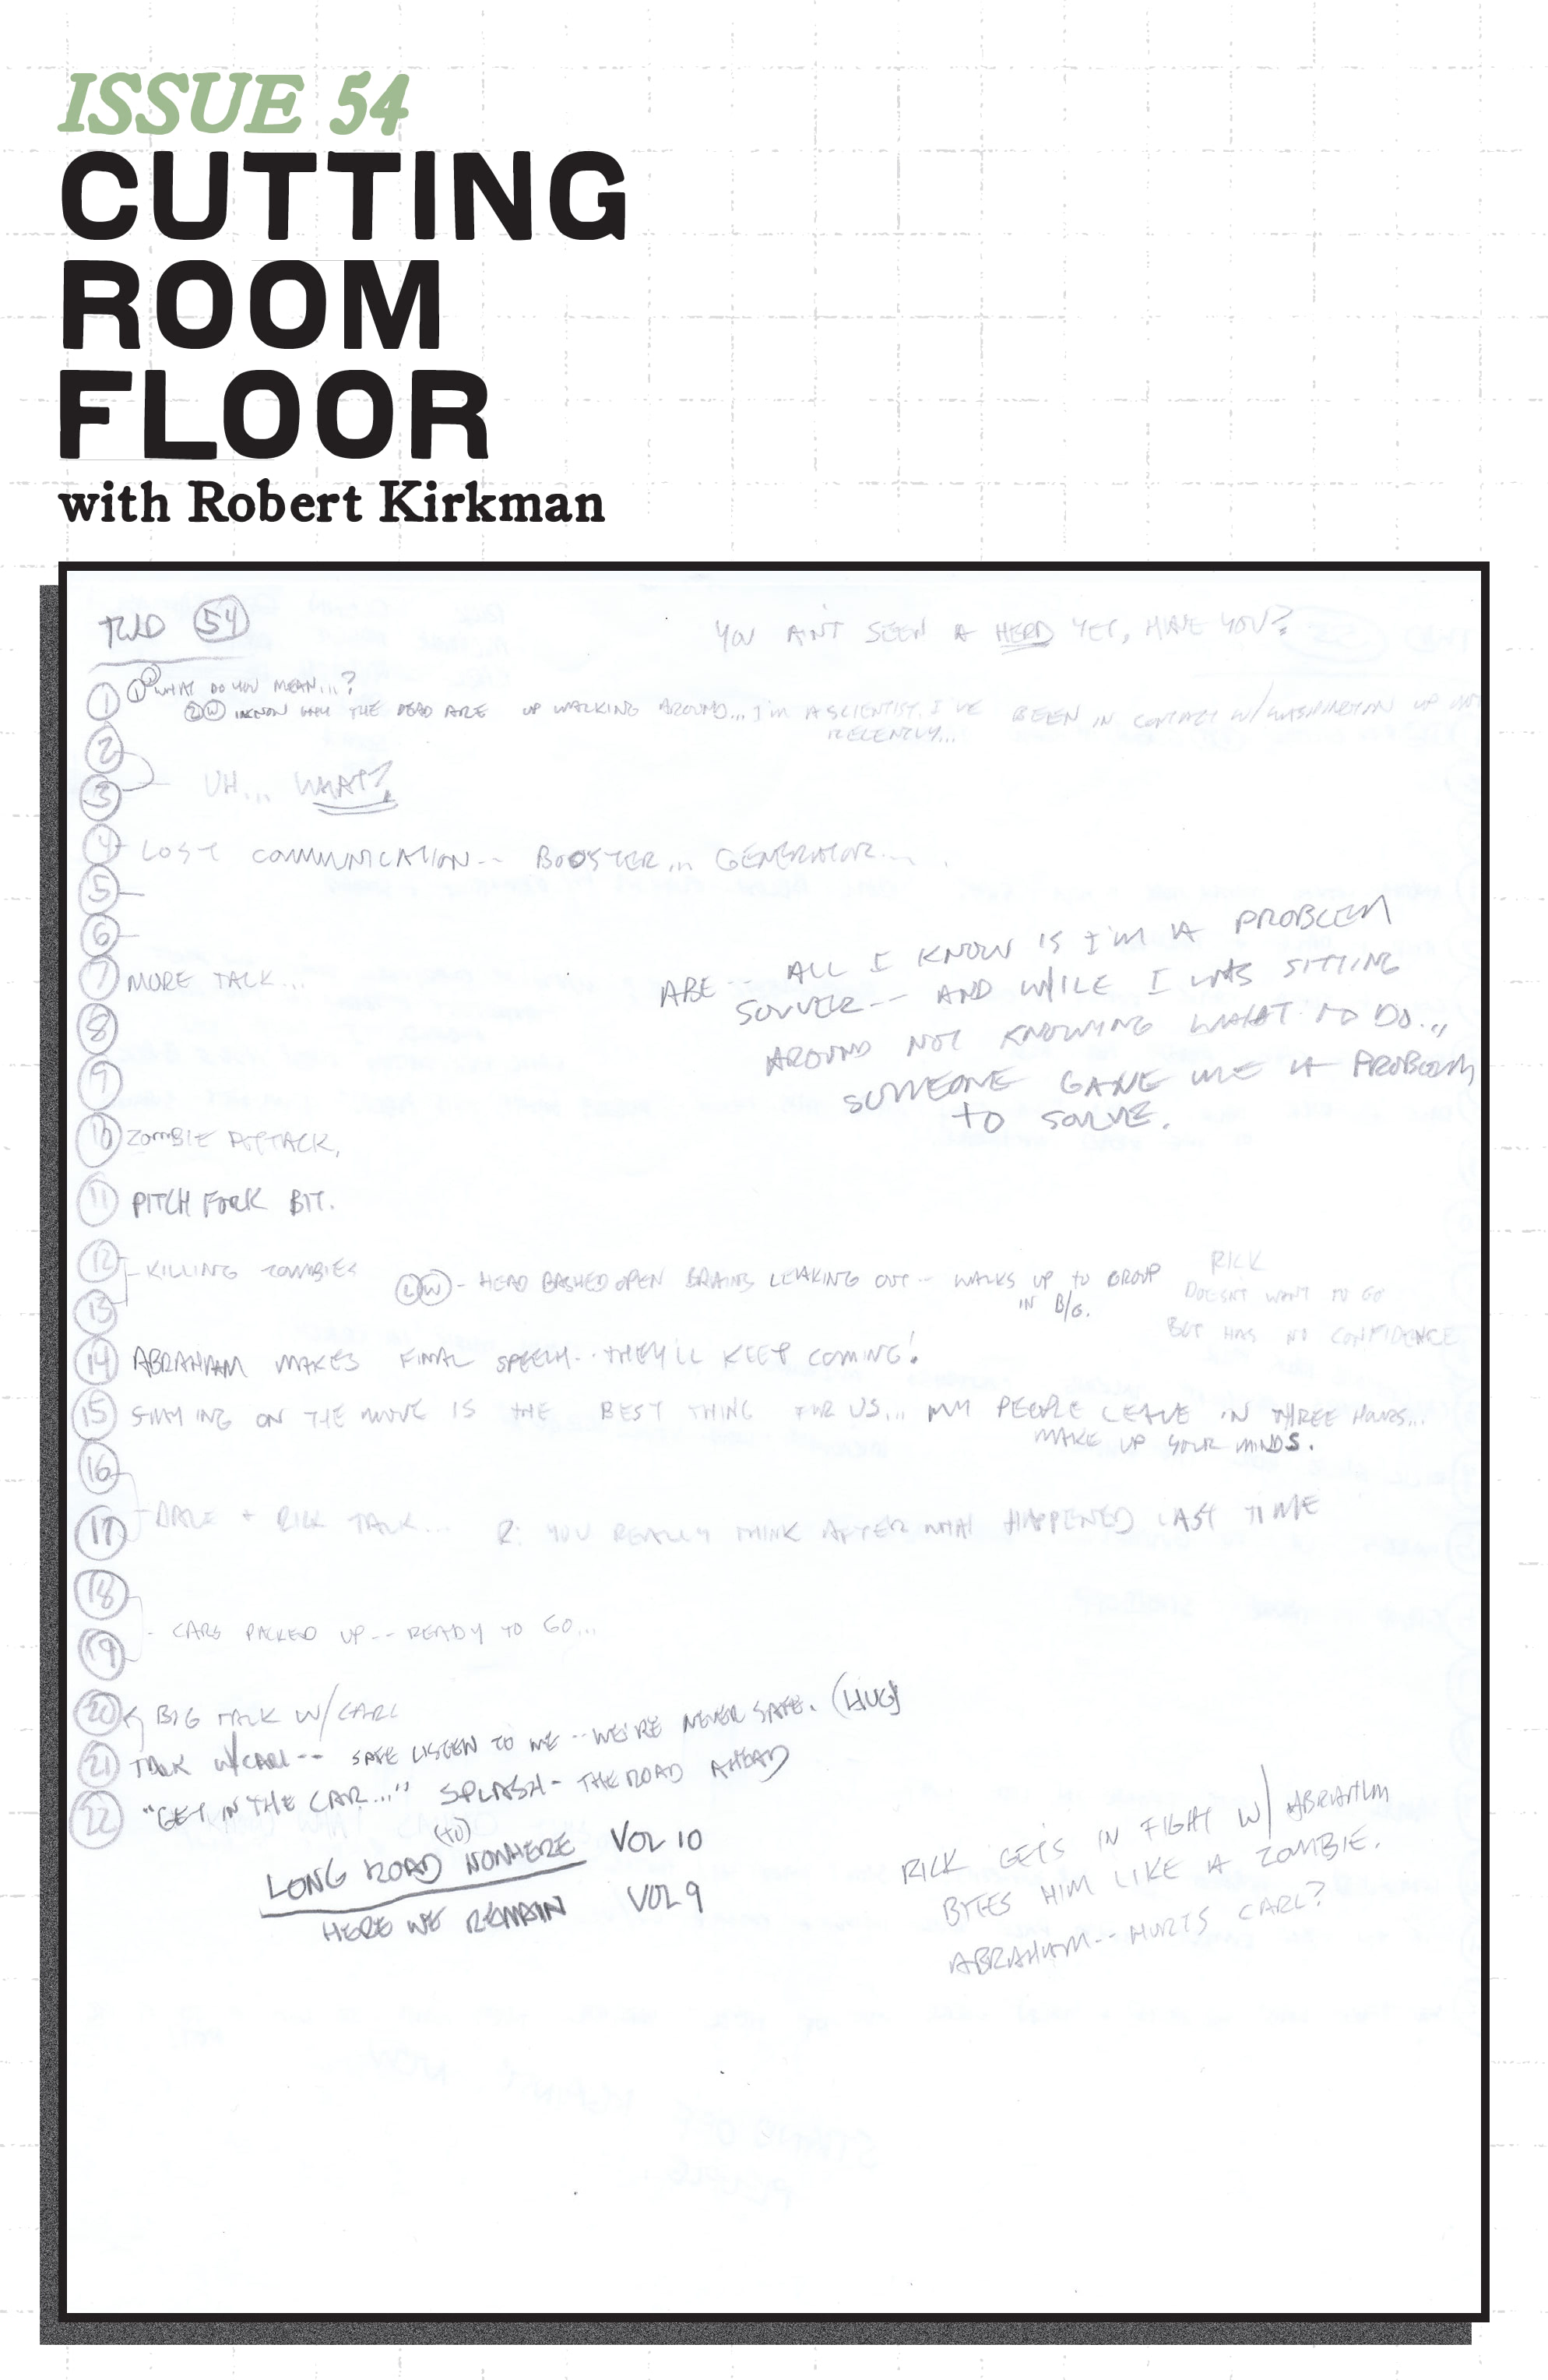 ISSUE 54
CUTTING
ROOM
FLOOR
with Robert Kirkman
TWD 54
YOU AIN'T SEEN A HERD YET, HAVE YOU?
1 1 WHAT DO YOU MEAN...?
2 W I KNOW WHY THE DEAD ARE UP WALKING AROUND... I'M A SCIENTIST, I'VE BEEN IN CONTACT W/ WASHINGTON UP
RECENTLY...
2
3 UH... WHAT?
4 LOST COMMUNICATION-- BOOSTER... GENERATOR...
5
6
7 MORE TALK...
ABE ALL I KNOW IS I'M A PROBLEM
SOLVER-- AND WILE I WAS SITTING
AROUND NOT KNOWING WHAT TO DO...
SOMEONE GAVE ME A PROBLEM
TO SOLVE.
8
9
10 ZOMBIE ATTACK.
11 PITCH FORK BIT.
12 - KILLING ZOMBIES
- HEAD BASHED OPEN BRAINS LEAKING OUT-- WALKS UP TO GROUP
IN B/G.
RICK
DOESN'T WANT TO GO
BUT HAS NO CONFIDENCE
13
14 ABRAHAM MAKES FINAL SPEECH-- THEY'LL KEEP COMING!
15 STAYING ON THE MOVE IS THE BEST THING FOR US... MY PEOPLE LEAVE IN THREE HOURS...
MAKE UP YOUR MINDS.
16
17 - DALE + RICK TALK... R: YOU REALLY THINK AFTER WHAT HAPPENED LAST TIME
18
19 - CARS PACKED UP-- READY TO GO...
20 BIG TALK W/CARL
21 TALK W/CARL-- SAFE LISTEN TO ME -- WE'RE NEVER SAFE. (HUG)
22 "GET IN THE CAR..." SPLASH- THE ROAD AHEAD
(TO)
LONG ROAD NOWHERE VOL 10
HERE WE REMAIN VOL 9
RICK GETS IN FIGHT W/ ABRAHAM
BYTES HIM LIKE A ZOMBIE.
ABRAHAM-- HURTS CARL?